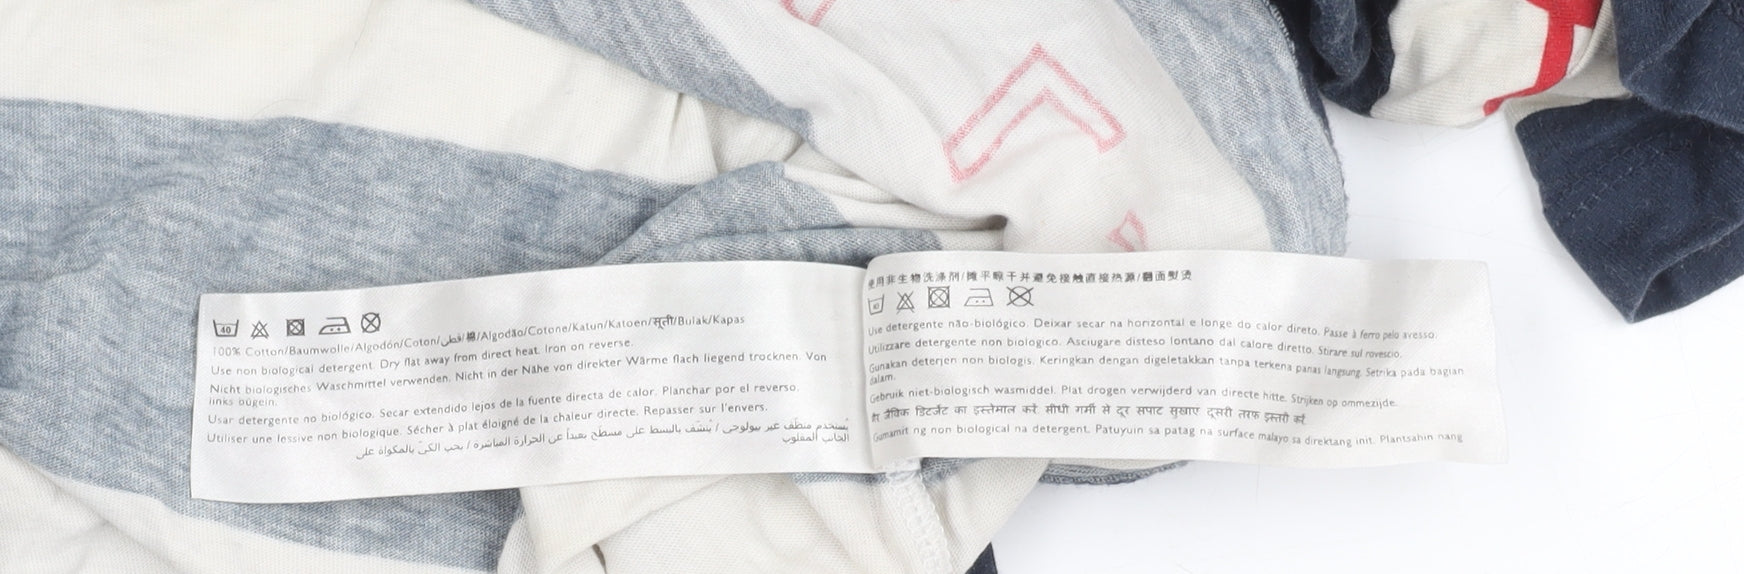 40
100% Cotton/Baumwolle/Algodón/Coton/قطن/棉/Algodão/Cotone/Katun/Katoen/सूती/Bulak/Kapas
Use non biological detergent. Dry flat away from direct heat. Iron on reverse.
Nicht biologisches Waschmittel verwenden. Nicht in der Nähe von direkter Wärme flach liegend trocknen. Von
links bügein.
Usar detergente no biológico. Secar extendido lejos de la fuente directa de calor. Planchar por el reverso.
Utiliser une lessive non biologique. Sécher à plat éloigné de la chaleur directe. Repasser sur l'envers.
يُستخدم منظف غير بيولوجى / يُنشف بالبسط على مسطح بعيداً عن الحرارة المباشرة / يجب الكىّ بالمكواة على
الجانب المقلوب
使用非生物洗涤剂/摊平晾干并避免接触直接热源/翻面熨烫
40
Use detergente não-biológico. Deixar secar na horizontal e longe do calor direto. Passe à ferro pelo avesso.
Utilizzare detergente non biologico. Asciugare disteso lontano dal calore diretto. Stirare sul rovescio.
Gunakan deterjen non biologis. Keringkan dengan digeletakkan tanpa terkena panas langsung. Setrika pada bagian
dalam.
Gebruik niet-biologisch wasmiddel. Plat drogen verwijderd van directe hitte. Strijken op ommezijde.
गैर जैविक डिटर्जेंट का इस्तेमाल करें सीधी गर्मी से दूर सपाट सुखाए दूसरी तरफ इस्तरी करें
Gumamit ng non biological na detergent. Patuyuin sa patag na surface malayo sa direktang init. Plantsahin nang